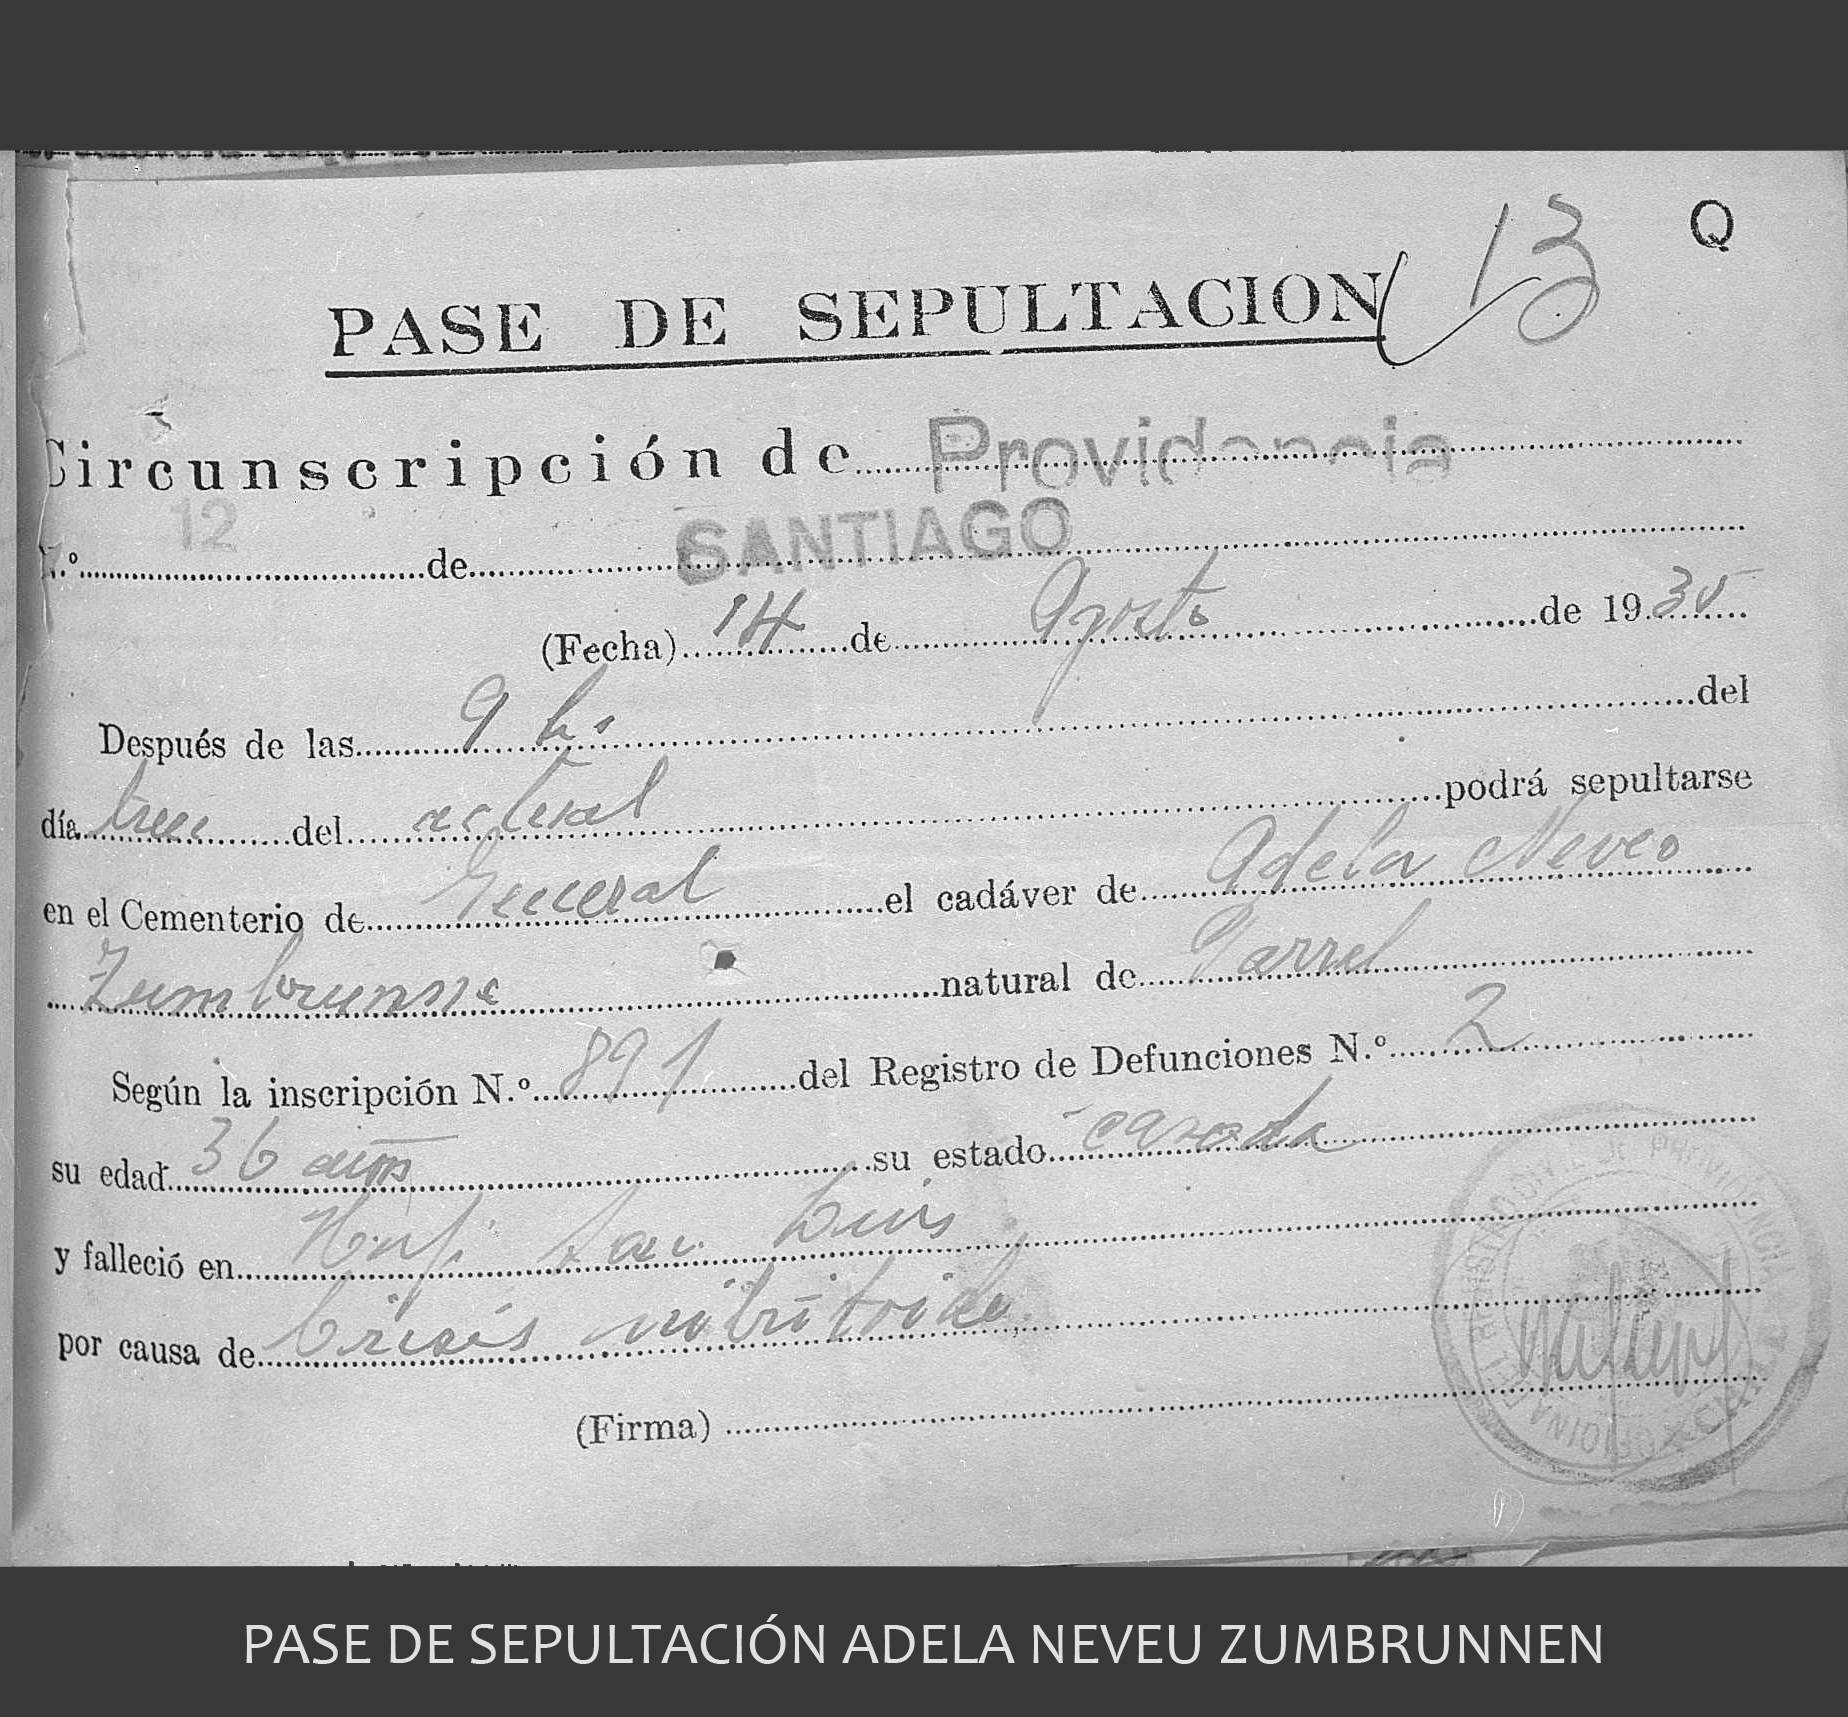 13 Q
PASE DE SEPULTACION
Circunscripción de Providencia
N.º 12 de SANTIAGO
(Fecha) 14 de Agosto de 1935
Después de las 9 hs del
día trece del actual podrá sepultarse
en el Cementerio de General el cadáver de Adela Neveo
Zumbrunne natural de Parrel
Según la inscripción N.º 891 del Registro de Defunciones N.º 2
su edad 36 años su estado casada
y falleció en Hosp. San Luis
por causa de Crisis nitritoide
(Firma)
PASE DE SEPULTACIÓN ADELA NEVEU ZUMBRUNNEN